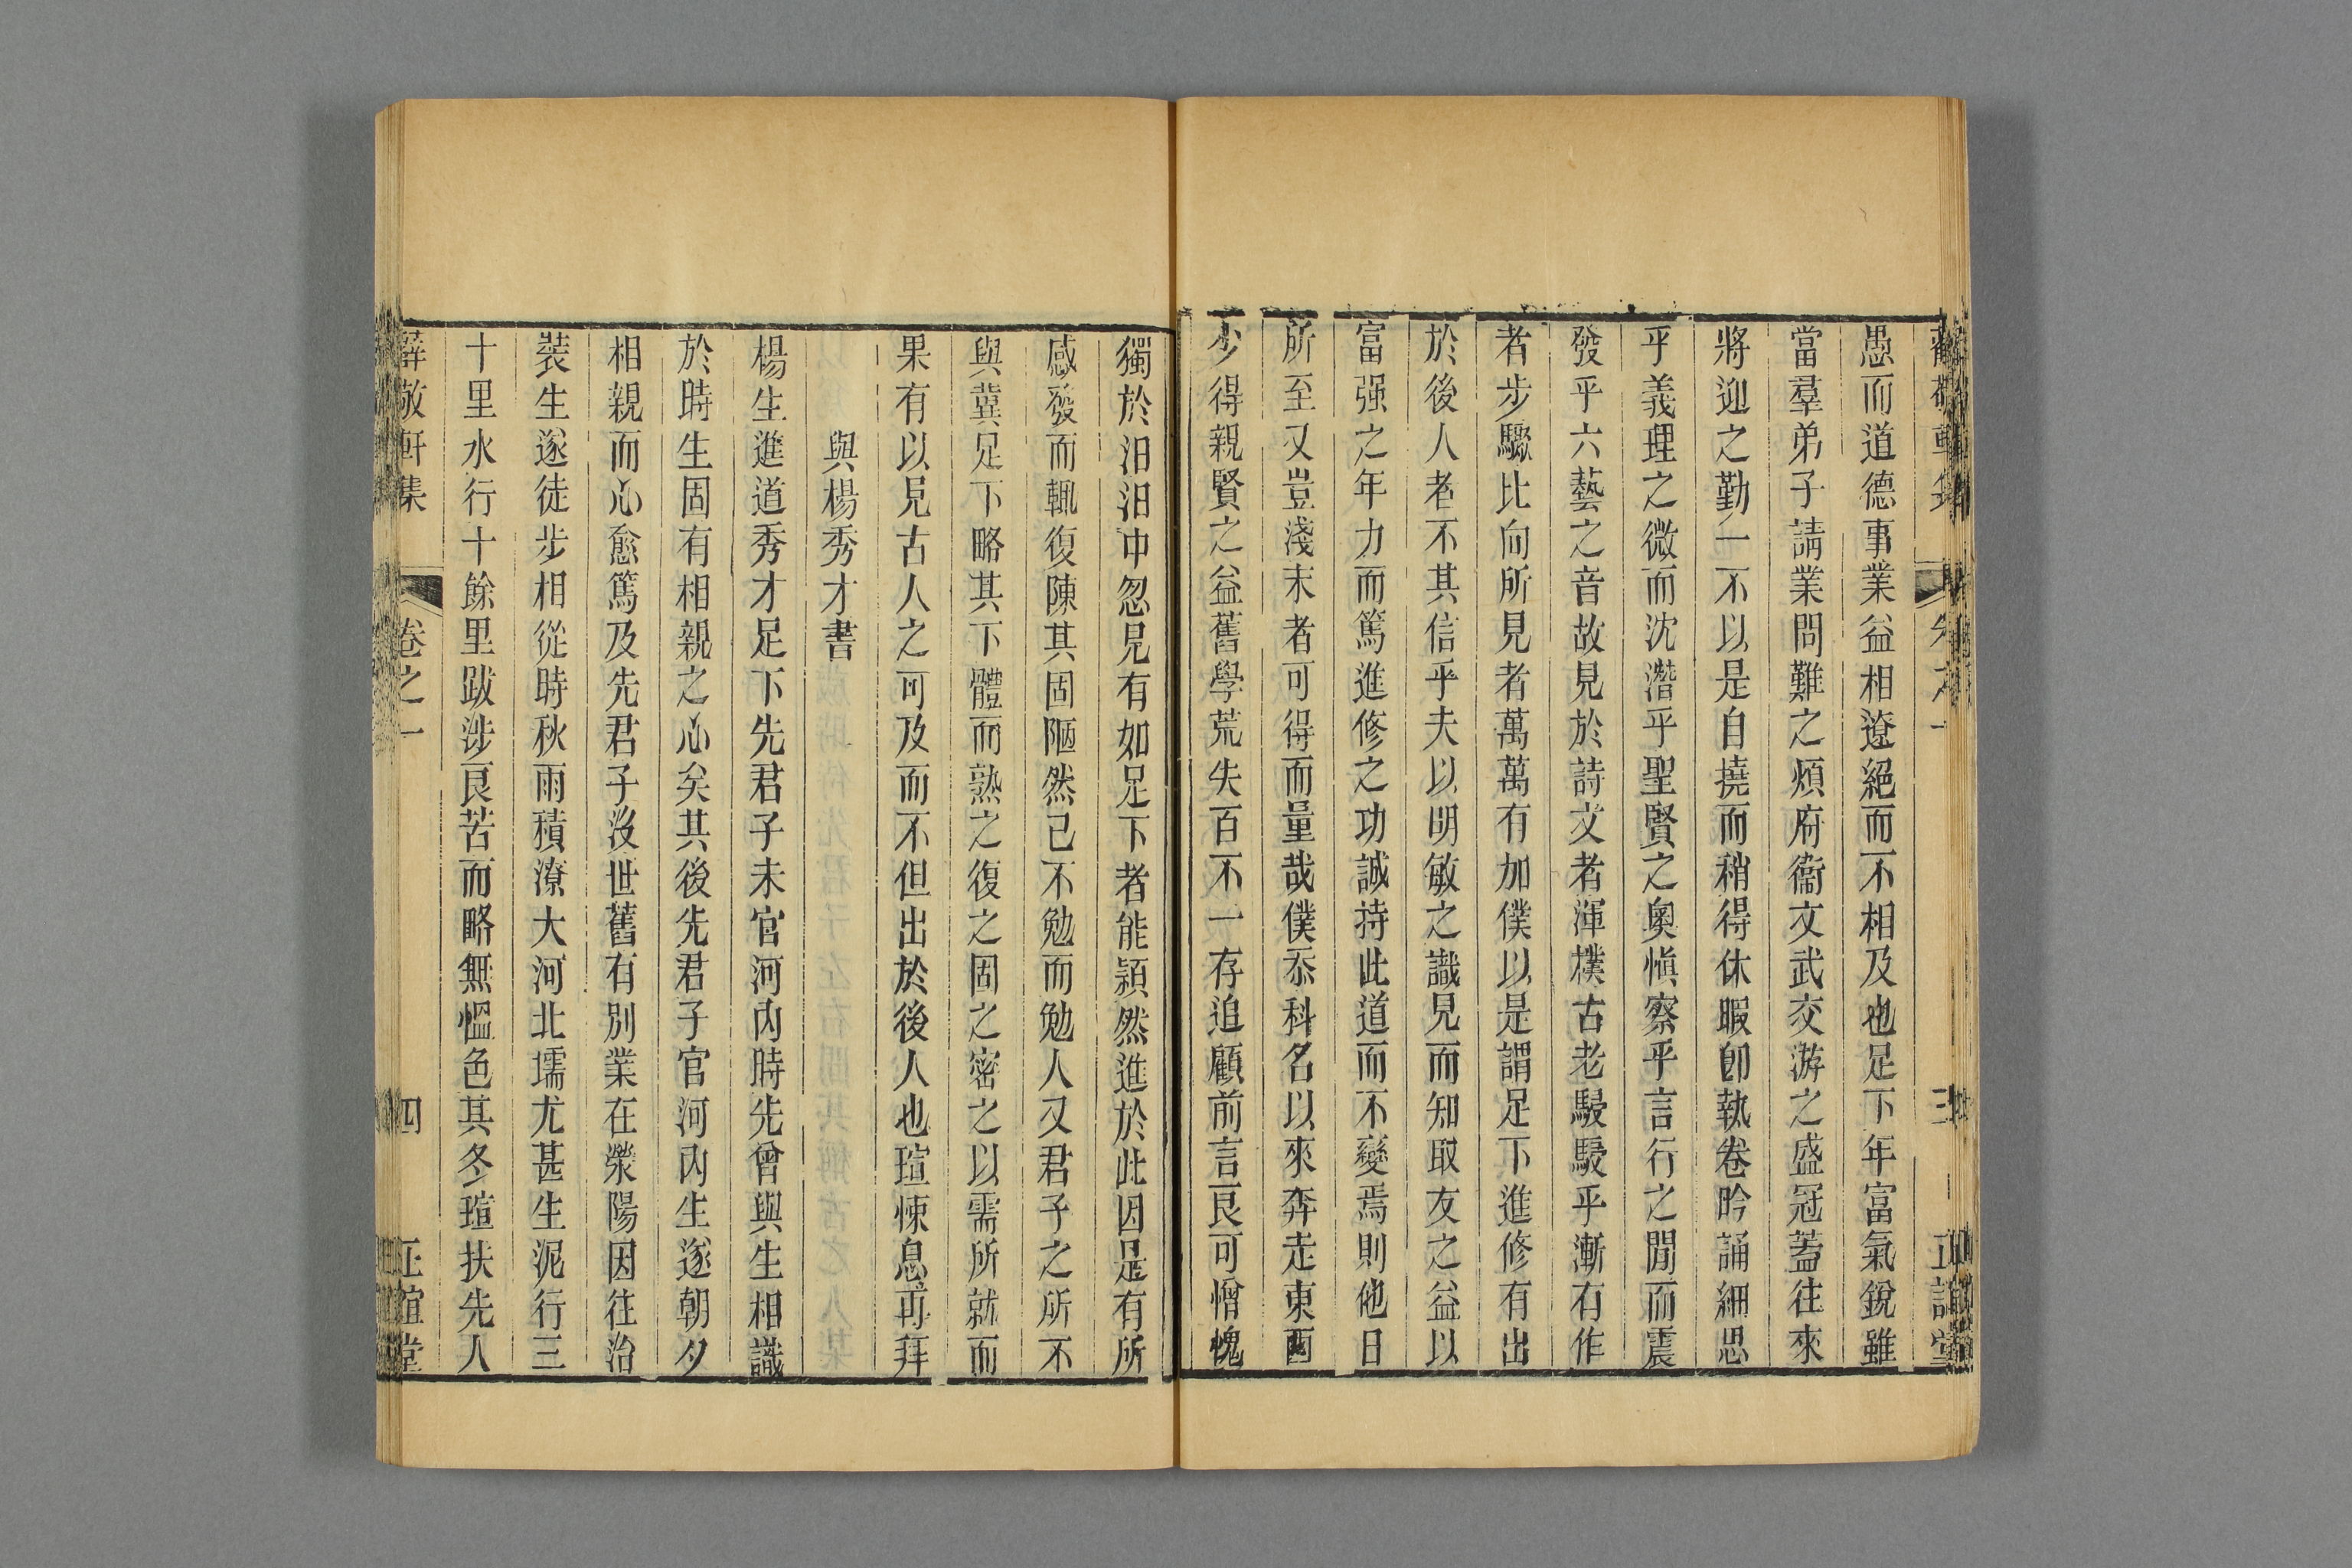 愚而道德事業益相遼絕而不相及也足下年富氣銳雖
當羣弟子請業問難之煩府衞文武交游之盛冠蓋往來
將迎之勤一不以是自撓而稍得休暇卽執卷吟誦細思
乎義理之微而沈潛乎聖賢之奧愼察乎言行之閒而震
發乎六藝之音故見於詩文者渾樸古老駸駸乎漸有作
者步驟比向所見者萬萬有加僕以是謂足下進修有出
於後人者不其信乎夫以明敏之識見而知取友之益以
富强之年力而篤進修之功誠持此道而不變焉則他日
所至又豈淺末者可得而量哉僕忝科名以來奔走東西
少得親賢之益舊學荒失百不一存追顧前言良可憎愧
獨於汨汨中忽見有如足下者能穎然進於此因是有所
感發而輒復陳其固陋然己不勉而勉人又君子之所不
與冀足下略其下體而熟之復之固之密之以需所就而
果有以見古人之可及而不但出於後人也瑄悚息再拜
與楊秀才書
楊生進道秀才足下先君子未官河內時先曾與生相識
於時生固有相親之心矣其後先君子官河內生遂朝夕
相親而心愈篤及先君子沒世舊有別業在滎陽因往治
裝生遂徒步相從時秋雨積潦大河北壖尤甚生泥行三
十里水行十餘里跋涉良苦而略無慍色其冬瑄扶先人
薛敬軒集 卷之一 四 正誼堂